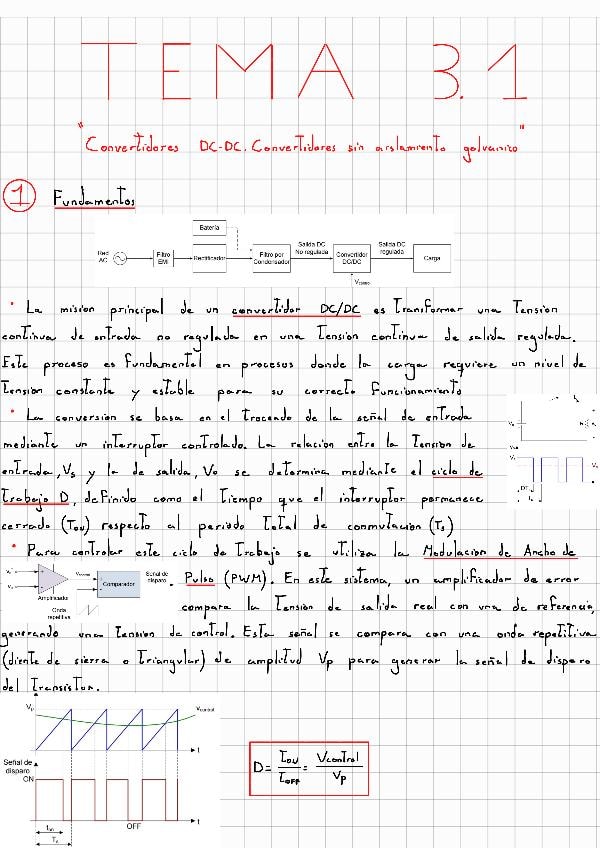 TEMA 3.1
"Convertidores DC-DC. Convertidores sin aislamiento galvanico"
1 Fundamentos
Batería
Red AC
Filtro EMI
Rectificador
Filtro por Condensador
Salida DC No regulada
Convertidor DC/DC
Salida DC regulada
Carga
Vcontrol
• La mision principal de un convertidor DC/DC es transformar una tension
continua de entrada no regulada en una tension continua de salida regulada.
Este proceso es fundamental en procesos donde la carga requiere un nivel de
tension constante y estable para su correcto funcionamiento
• La conversion se basa en el troceado de la señal de entrada
mediante un interruptor controlado. La relacion entre la tension de
entrada, Vs y la de salida, Vo se determina mediante el ciclo de
trabajo D, definido como el tiempo que el interruptor permanece
cerrado (TON) respecto al periodo total de conmutacion (Ts)
• Para controlar este ciclo de trabajo se utiliza la Modulacion de Ancho de
Pulso (PWM). En este sistema, un amplificador de error
compara la tension de salida real con una de referencia,
generando una tension de control. Esta señal se compara con una onda repetitiva
(diente de sierra o triangular) de amplitud Vp para generar la señal de disparo
del transistor.
Amplificador
Vcontrol
Comparador
Señal de disparo
Onda repetitiva
Vp
Vcontrol
t
Señal de disparo
ON
t
ton
OFF
Ts
D = TON/TOFF = Vcontrol/Vp